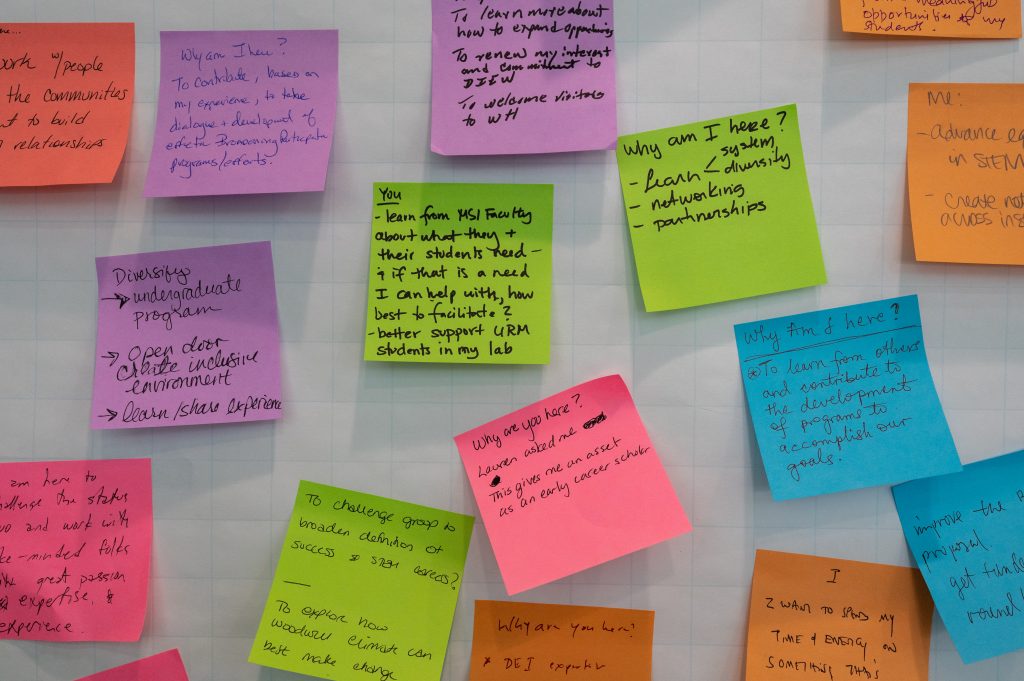 work w/people
the communities
to build
relationships
Why am I here?
To contribute, based on
my experience, to take
dialogue + development of
effective Broadening Participation
programs/efforts.
To learn more about
how to expand opportunities
To renew my interest
and commitment to
DIEW
To welcome visitors
to WH
opportunities to my
students.
Why am I here?
- learn < system
diversity
- networking
- partnerships
Me:
- Advance
in STEM
- Create
across
You
- learn from MSI Faculty
about what they +
their students need -
& if that is a need
I can help with, how
best to facilitate?
- better support URM
students in my lab
Diversify
→ undergraduate
program
→ Open door
create inclusive
environment
→ learn/share experience
Why Am I here?
To learn from others
and contribute to
the development
of programs to
accomplish our
goals!
Why are you here?
Lauren asked me
This gives me an asset
as an early career scholar
am here to
challenge the status
and work with
minded folks
great passion
expertise, &
experience.
To challenge group to
broaden definition of
success in STEM careers?
—
To explore how
Woodwell Climate can
best make change
Why are you here?
* DEI expertise
I
I WANT TO SPEND MY
TIME & ENERGY ON
SOMETHING THAT'S
improve the
proposal
get funded
round